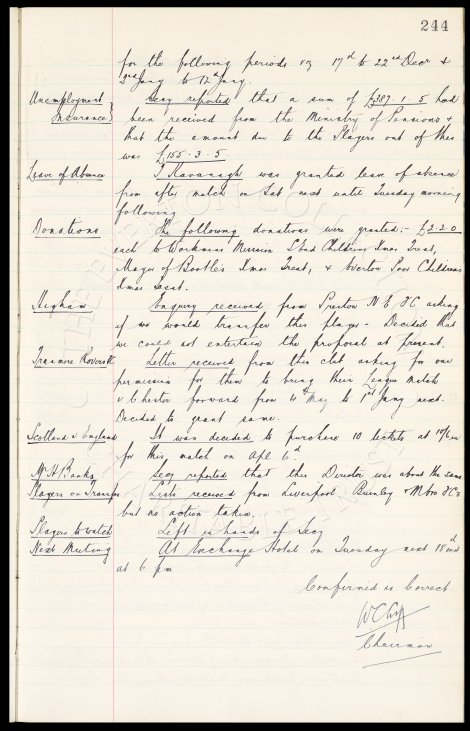 244
for the following periods viz 17th to 22nd Decr &
2nd Jany to 12th Jany.
Unemployment Insurance } Secy reported that a sum of £387.1.5 had
been received from the Ministry of Pensions &
that the amount due to the Players out of this
was £155.3.5
Leave of Absence J Kavanagh was granted leave of absence
from after match on Sat next until Tuesday morning
following
Donations The following donations were granted:- £2.2.0
each to Workmens Mission S'End Childrens Xmas Treat,
Mayor of Bootles Xmas Treat, & Everton Poor Childrens
Xmas
Meghan Enquiry received from Preston N E FC asking
if we would transfer this player - Decided that
we could not entertain the proposal at present.
Tranmere Rovers FC Letter received from this club asking for our
permission for them to bring their League Match
v Chester forward from 4th May to 1st Jany next.
Decided to grant same.
Scotland v England It was decided to purchase 10 tickets at 10/6 ea
for this match on Apl 6th
Mr H Banks Secy reported that this Director was about the same
Players on Transfer Lists received from Liverpool Burnley & Mbro FC's
but no action taken.
Players to watch Left in hands of Secy
Next Meeting At Exchange Hotel on Tuesday next 18th inst
at 6 pm
Confirmed as Correct
W C Cuff
Chairman
THE EVERTON COLLECTION